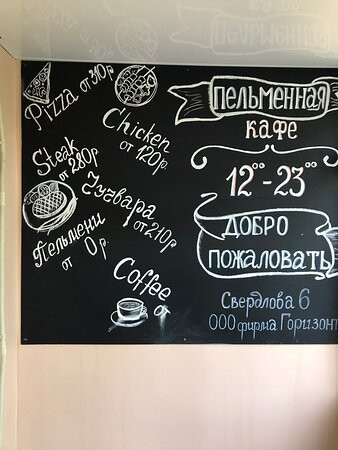 Pizza от 310р
Chicken
от 120р.
Steak
от 280р
Чучвара
от 210р
Пельмени
от 0р
Coffee
от
ПЕЛЬМЕННАЯ
КАФЕ
12⁰⁰-23⁰⁰
ДОБРО
ПОЖАЛОВАТЬ
Свердлова 6
ООО фирма Горизонт